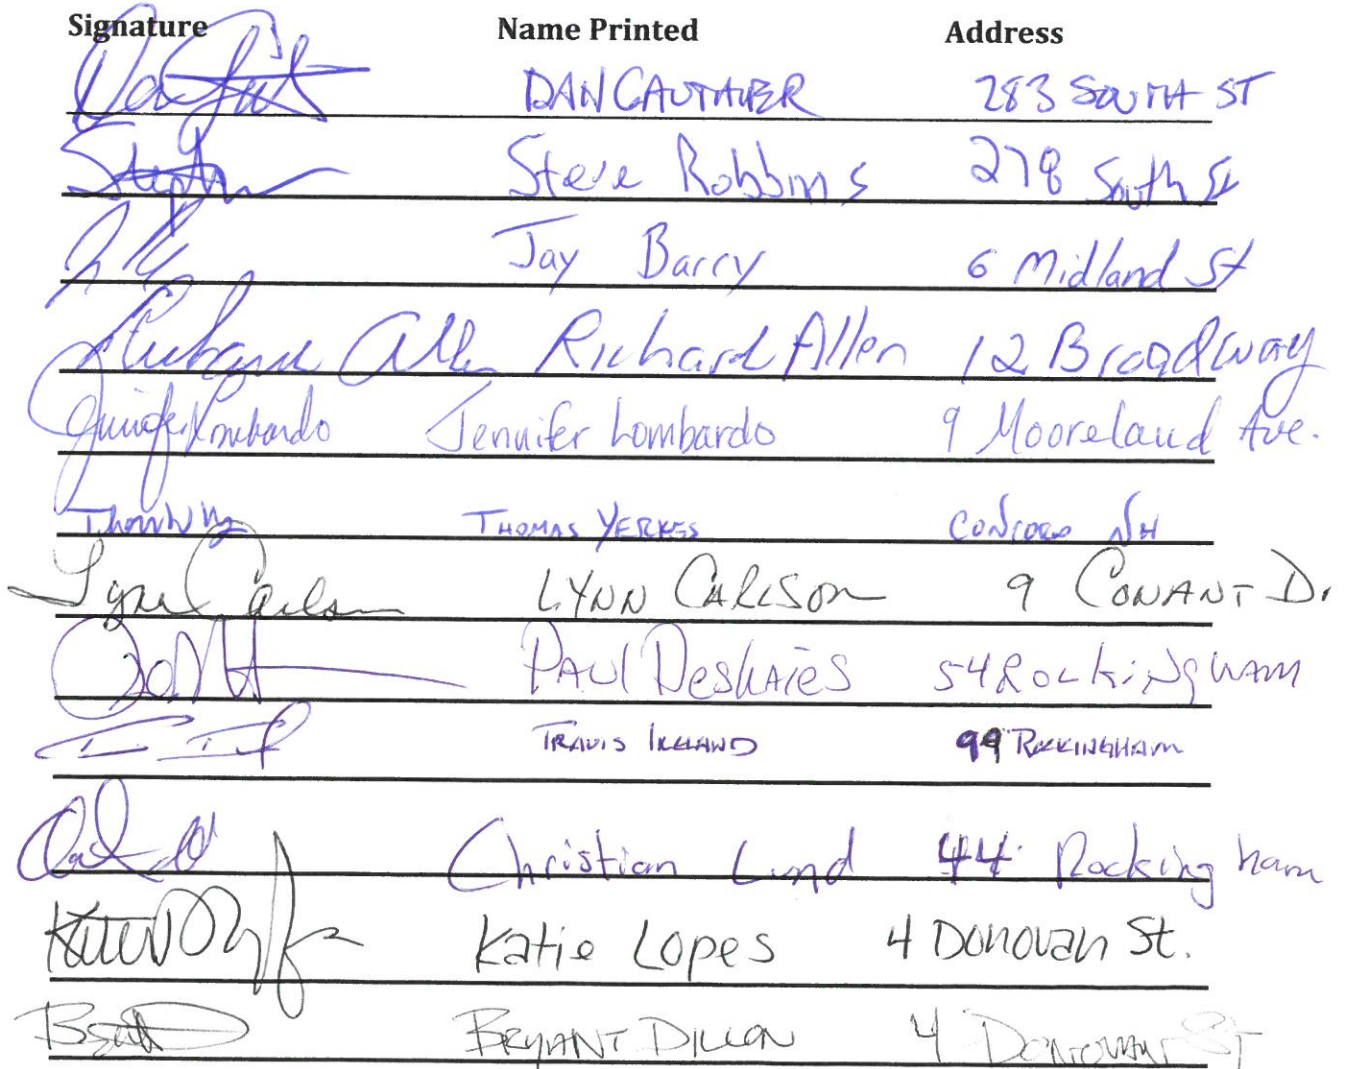 Signature Name Printed Address
DAN 283 SOUTH ST
Steve Robbins 278 South St
Jay Barry 6 Midland St
Richard Allen Richard Allen 12 Broadway
Jennifer Lombardo Jennifer Lombardo 9 Mooreland Ave.
THOMAS YERKES CONCORD NH
Lynn Carlson LYNN CARLSON 9 CONANT Dr
PAUL Deshaies 54 Rockingham
TRAVIS IRELAND 99 ROCKINGHAM
Christian Lund 44 Rockingham
Katie Lopes 4 Donovan St.
BRYANT DILLON 4 DONOVAN ST